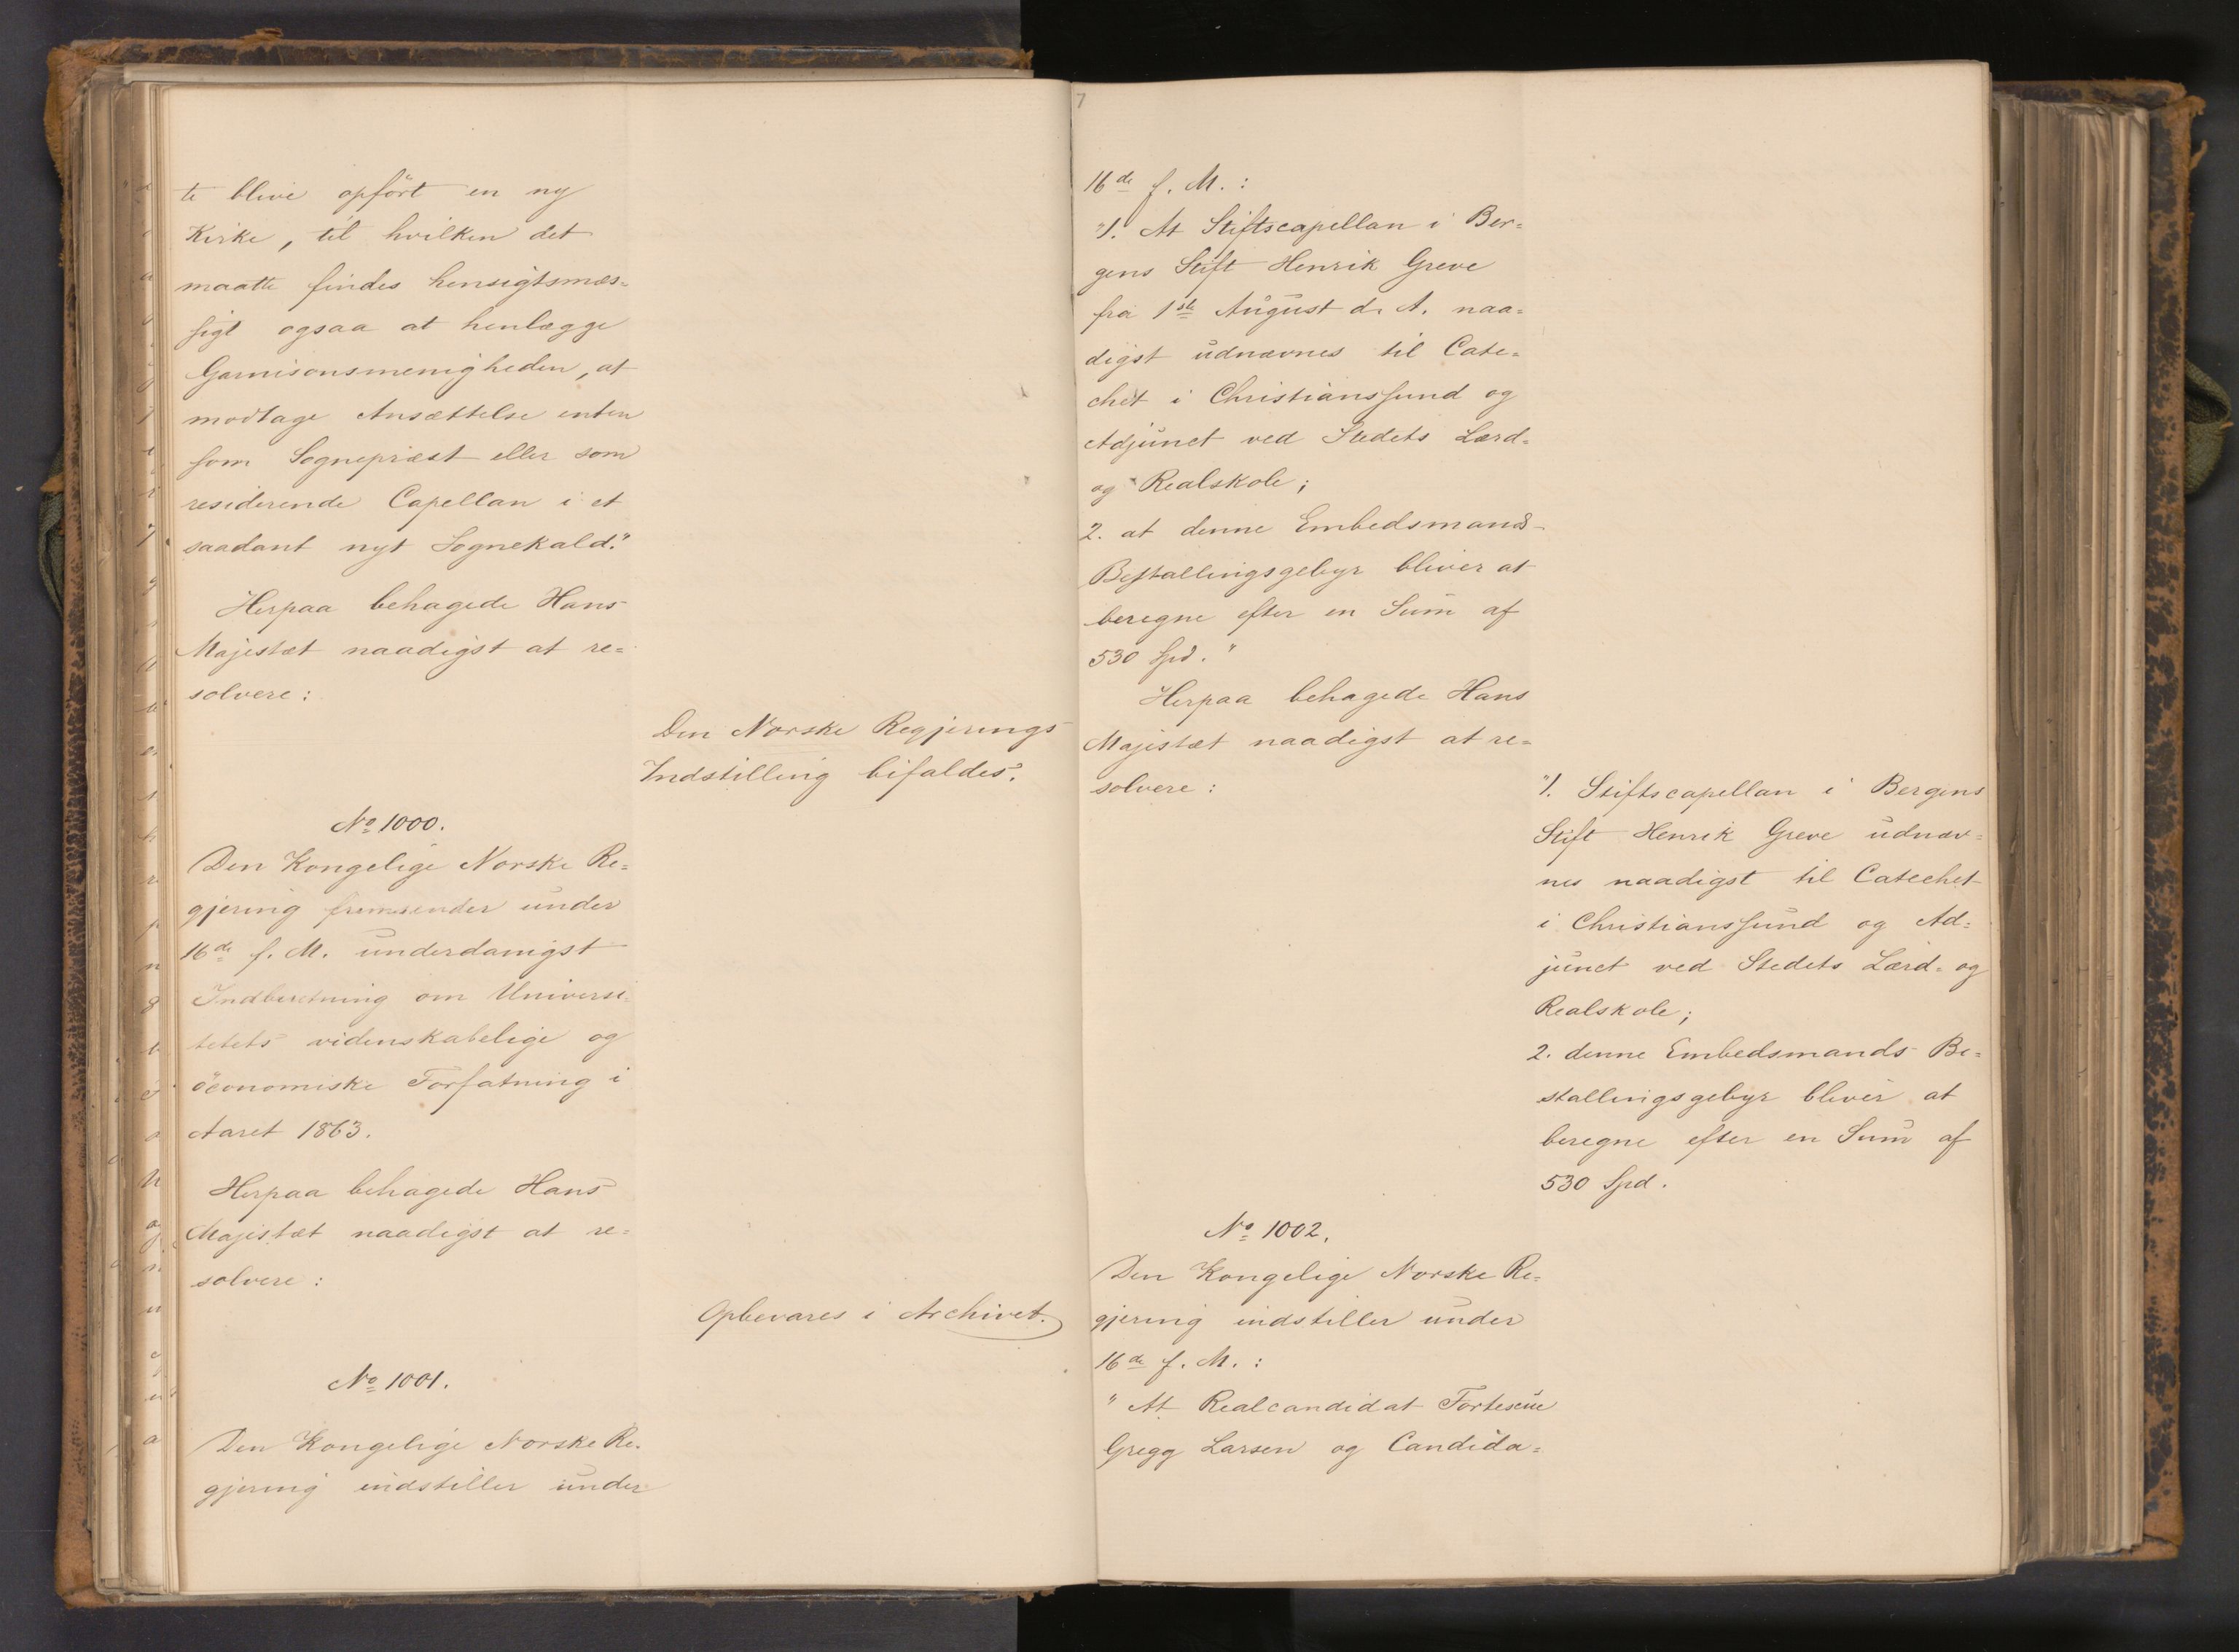 te blive opført en ny
Kirke, til hvilken det
maatte findes hensigtsmæs=
sigt ogsaa at henlægge
Garnisonsmenigheden, at
modtage Ansættelse enten
som Sognepræst eller som
residerende Capellan i et
saadant nyt Sognekald."
Herpaa behagede Hans
Majestæt naadigst at re=
solvere:
Den Norske Regjerings
Indstilling bifaldes.
No 1000.
Den Kongelige Norske Re=
gjering fremsender under
16de f. M. underdanigst
Indberetning om Universi=
tetets videnskabelige og
öconomiske Forfatning i
Aaret 1863.
Herpaa behagede Hans
Majestæt naadigst at re=
solvere:
Opbevares i Archivet.
No 1001.
Den Kongelige Norske Re=
gjering indstiller under
7
16de f. M.:
"1. At Stiftscapellan i Ber=
gens Stift Henrik Greve
fra 1ste August d. A. naa=
digst udnævnes til Cate=
chet i Christianssund og
Adjunct ved Stedets Lærd=
og Realskole;
2. at denne Embedsmands
Bestallingsgebyr bliver at
beregne efter en Sum af
530 Spd."
Herpaa behagede Hans
Majestæt naadigst at re=
solvere:
"1. Stiftscapellan i Bergens
Stift Henrik Greve udnæv=
nes naadigst til Catechet
i Christianssund og Ad=
junct ved Stedets Lærd= og
Realskole;
2. denne Embedsmands Be=
stallingsgebyr bliver at
beregne efter en Sum af
530 Spd.
No 1002.
Den Kongelige Norske Re=
gjering indstiller under
16de f. M.:
"At Realcandidat Fortescue
Gregg Larsen og Candida=